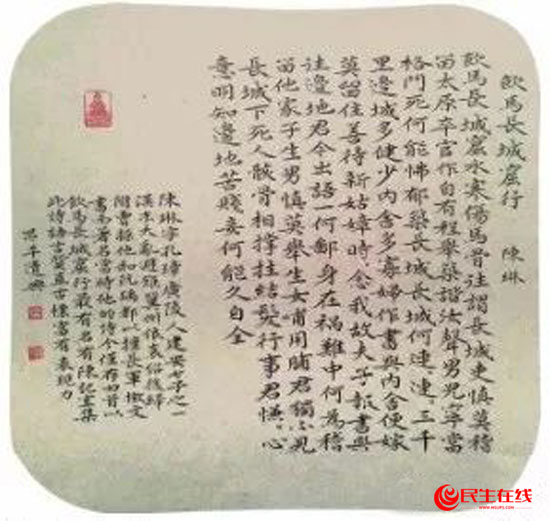 飲馬長城窟行 陳琳
飲馬長城窟水寒傷馬骨往謂長城吏慎莫稽
留太原卒官作自有程舉築諧汝聲男兒寧當
格鬥死何能怫郁築長城長城何連、連、三千
里邊城多健少內舍多寡婦作書與內舍便嫁
莫留住善待新姑嫜時、念我故夫子報書與
往邊地君今出語一何鄙身在禍難中何為稽
留他家子生男慎莫舉生女哺用脯君獨不見
長城下死人骸骨相撐拄結髮行事君慊、心
意明知邊地苦賤妾何能久自全
陳琳字孔璋廣陵人建安七子之一
漢末大亂避難冀州依袁紹後歸
附曹操他和阮瑀都以擅長軍檄文
書而著名當時他的詩今僅存四首以
飲馬長城窟行最有名有陳記室集
此詩語言質直古樸富有表現力
民生在线